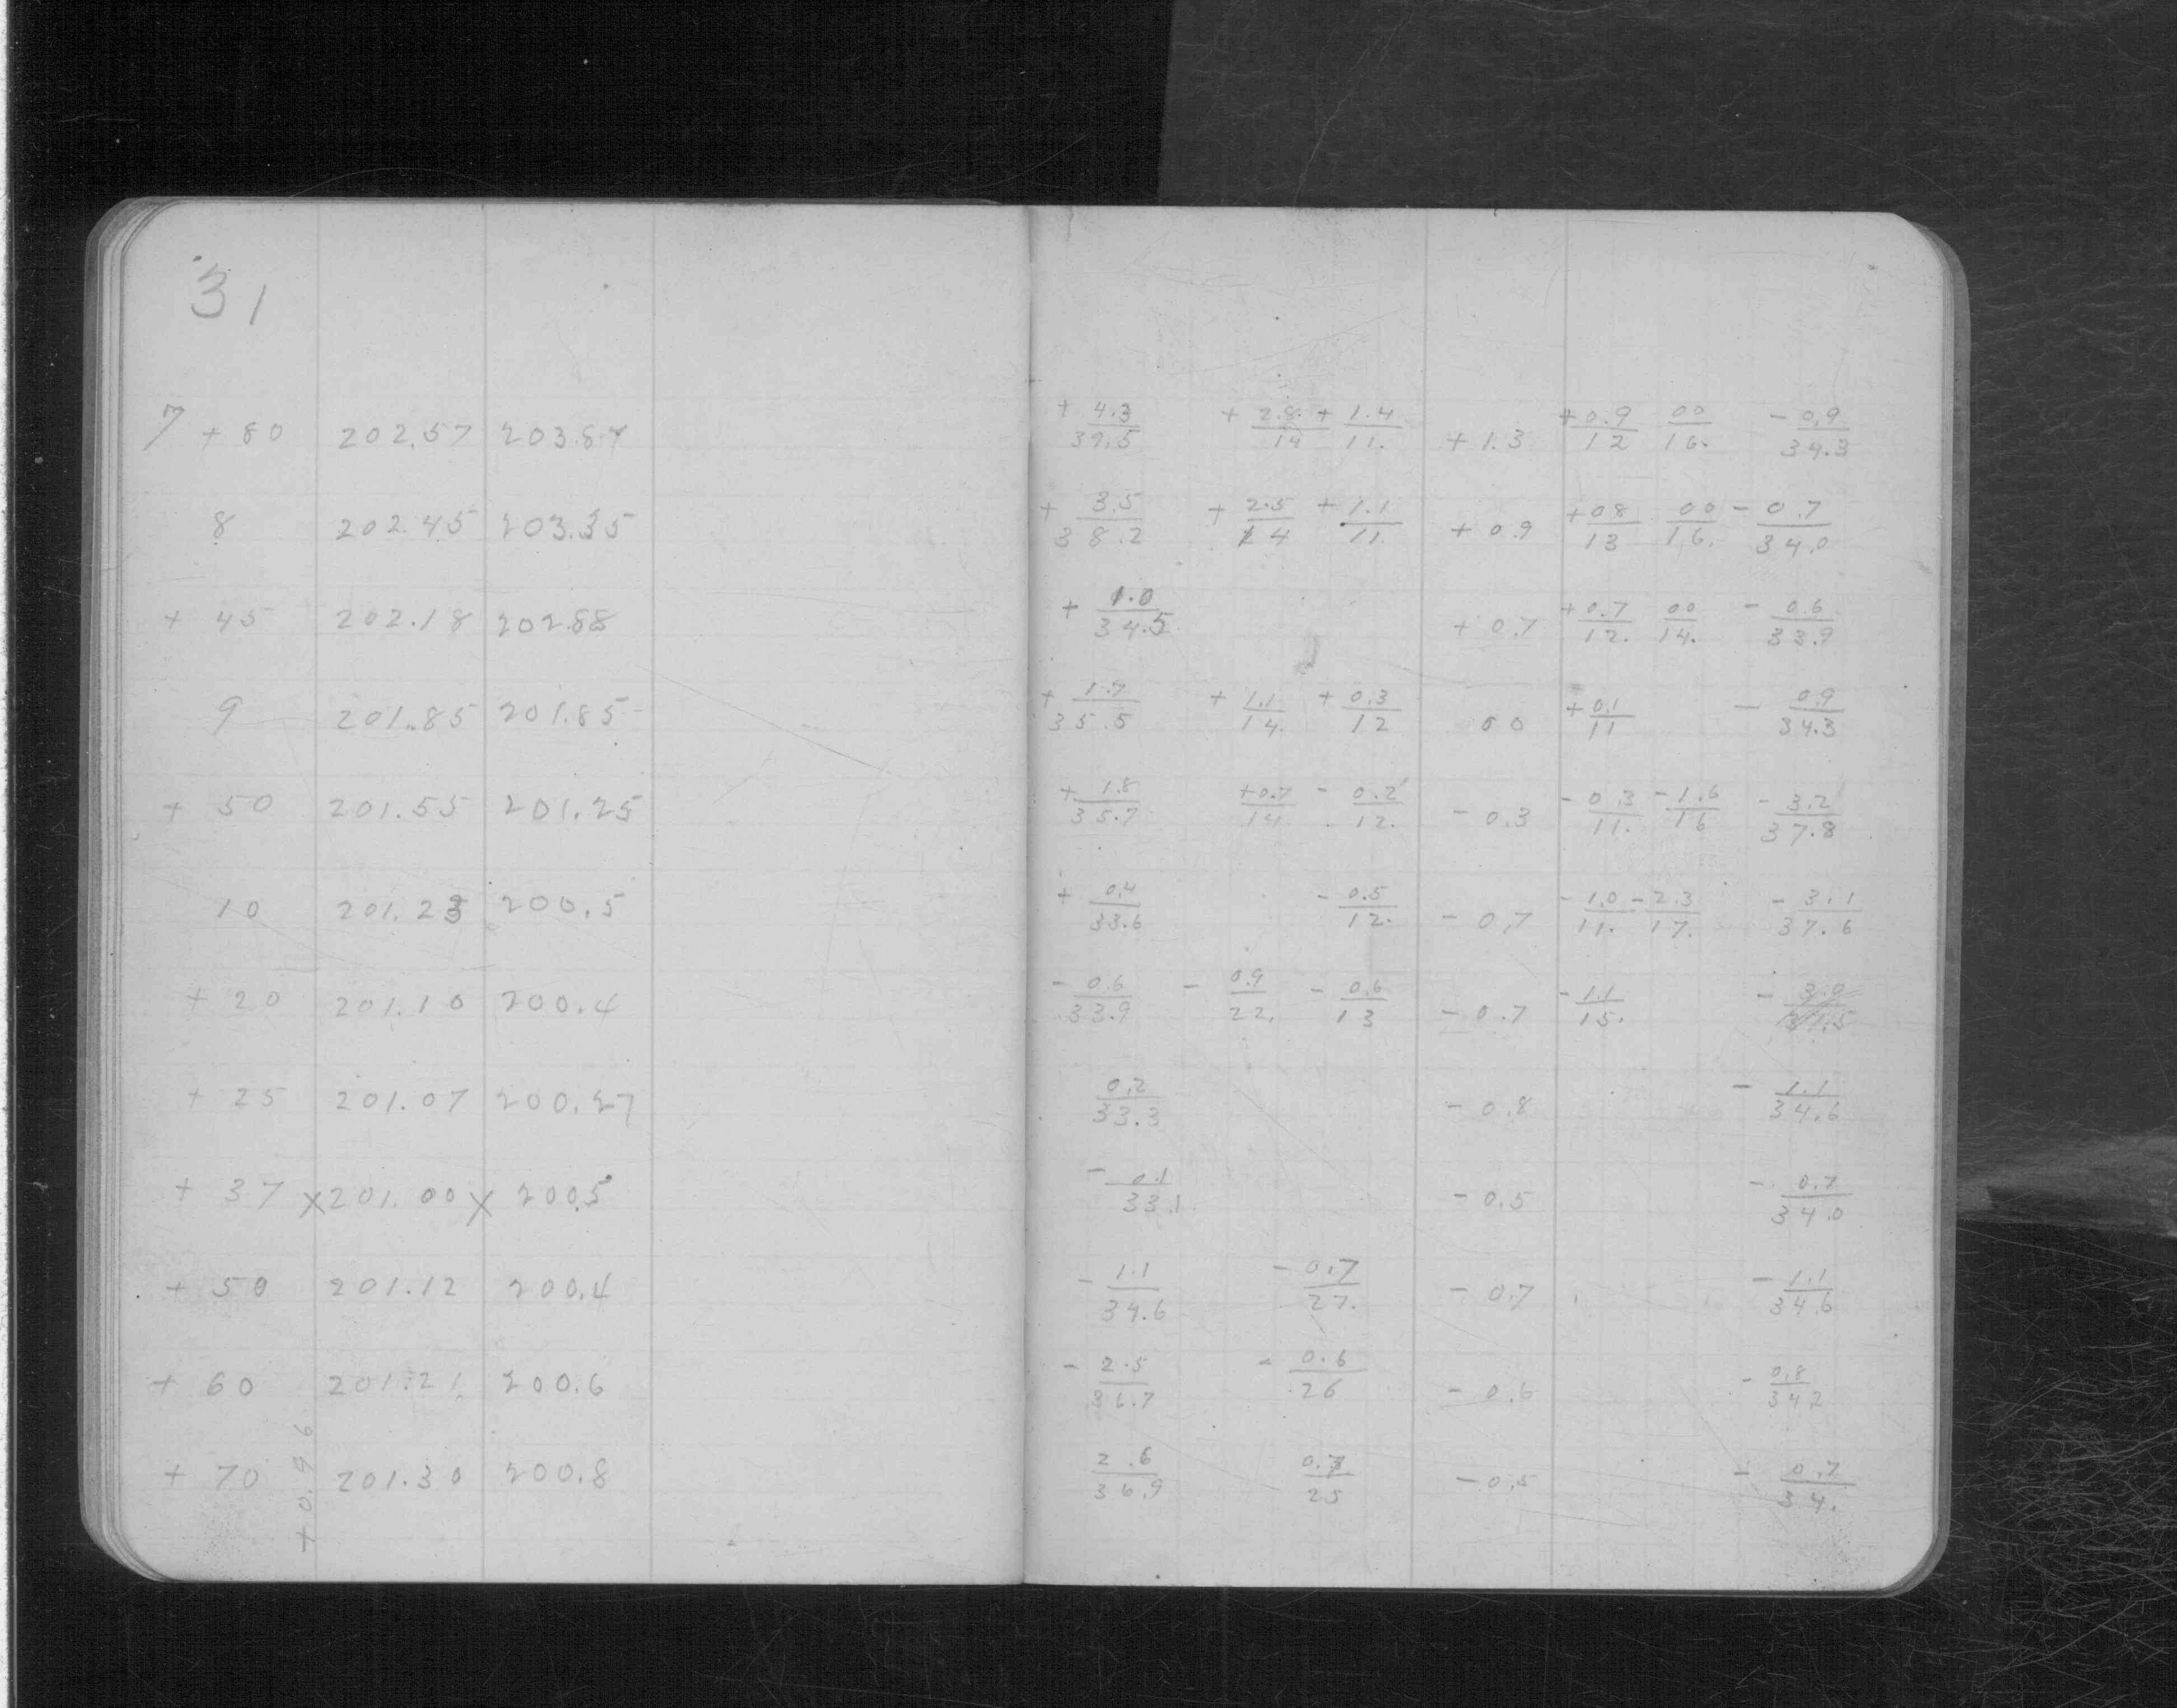 31
7 + 80 202.57 203.87 + 4.3/39.5 + 2.8/14 + 1.4/11. + 1.3 + 0.9/12 00/16. - 0.9/34.3
8 202.45 203.35 + 3.5/38.2 + 2.5/14 + 1.1/11. + 0.9 + 08/13 00/16. - 0.7/34.0
+ 45 202.18 202.88 + 1.0/34.5 + 0.7 + 0.7/12. 00/14. - 0.6/33.9
9 201.85 201.85 + 1.7/35.5 + 1.1/14. + 0.3/12 00 + 0.1/11 - 0.9/34.3
+ 50 201.55 201.25 + 1.8/35.7 + 0.7/14 - 0.2/12. - 0.3 - 0.3/11. - 1.6/16 - 3.2/37.8
10 201.23 200.5 + 0.4/33.6 - 0.5/12. - 0.7 - 1.0/11. - 2.3/17. - 3.1/37.6
+ 20 201.10 200.4 - 0.6/33.9 - 0.9/22. - 0.6/13 - 0.7 - 1.1/15. - 3.0/37.5
+ 25 201.07 200.27 0.2/33.3 - 0.8 - 1.1/34.6
+ 37 x 201.00 x 200.5 - 0.1/33.1 - 0.5 - 0.7/34.0
+ 50 201.12 200.4 - 1.1/34.6 - 0.7/27. - 0.7 - 1.1/34.6
+ 60 201.21 200.6 - 2.5/36.7 - 0.6/26 - 0.6 - 0.8/34.2
+ 70 201.30 200.8 2.6/36.9 0.3/25 - 0.5 - 0.7/34.
+ 0.96